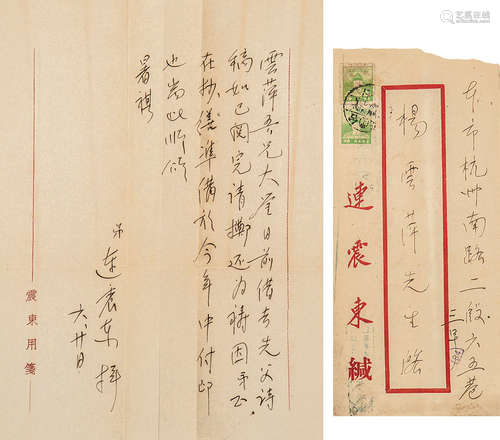 雲萍吾兄大鑒日前借去先父詩
稿如已閱完請擲還為禱因弟正
在抄繕準備於今年中付印
也耑此順頌
暑祺
弟
連震東拜
六、廿日
震東用箋
本市杭州南路二段六五巷
三号
楊雲萍先生啓
連震東緘